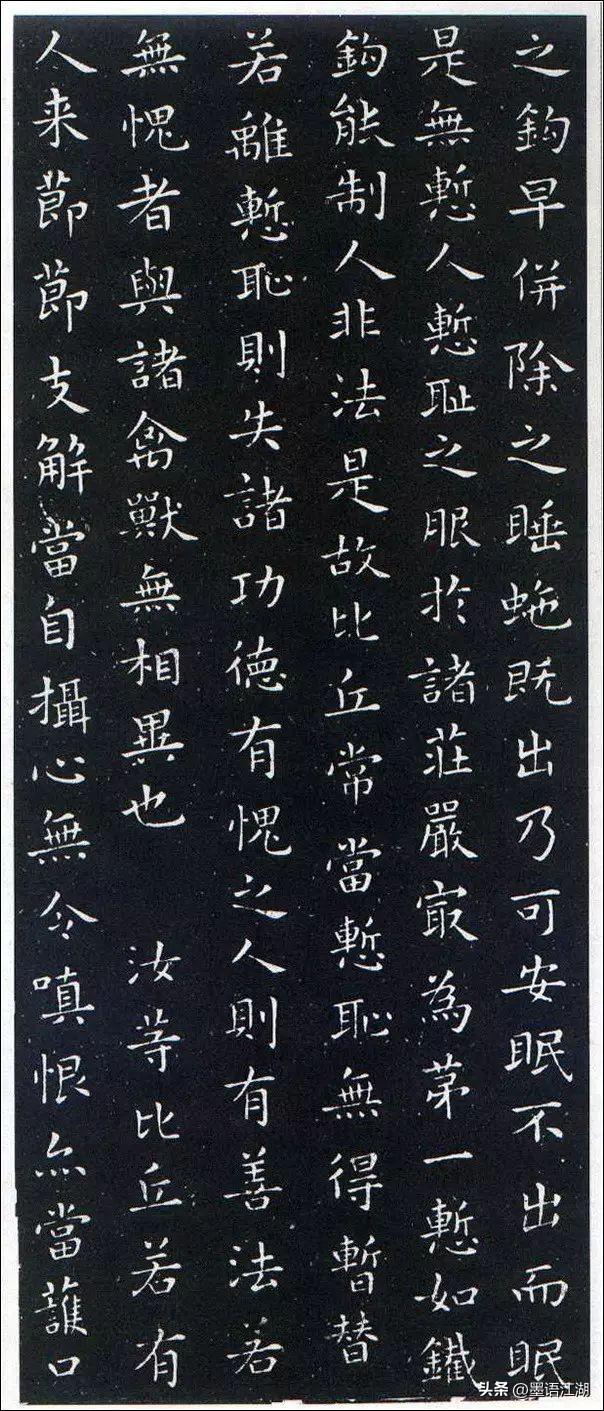 之鈎早併除之睡虵既出乃可安眠不出而眠
是無慙人慙耻之服於諸莊嚴㝡為苐一慙如鐵
鈎能制人非法是故比丘常當慙恥無得暫替
若離慙恥則失諸功德有愧之人則有善法若
無愧者與諸禽獸無相異也 汝等比丘若有
人来莭莭支解當自攝心無令嗔恨亦當護口
头条 @墨语江湖